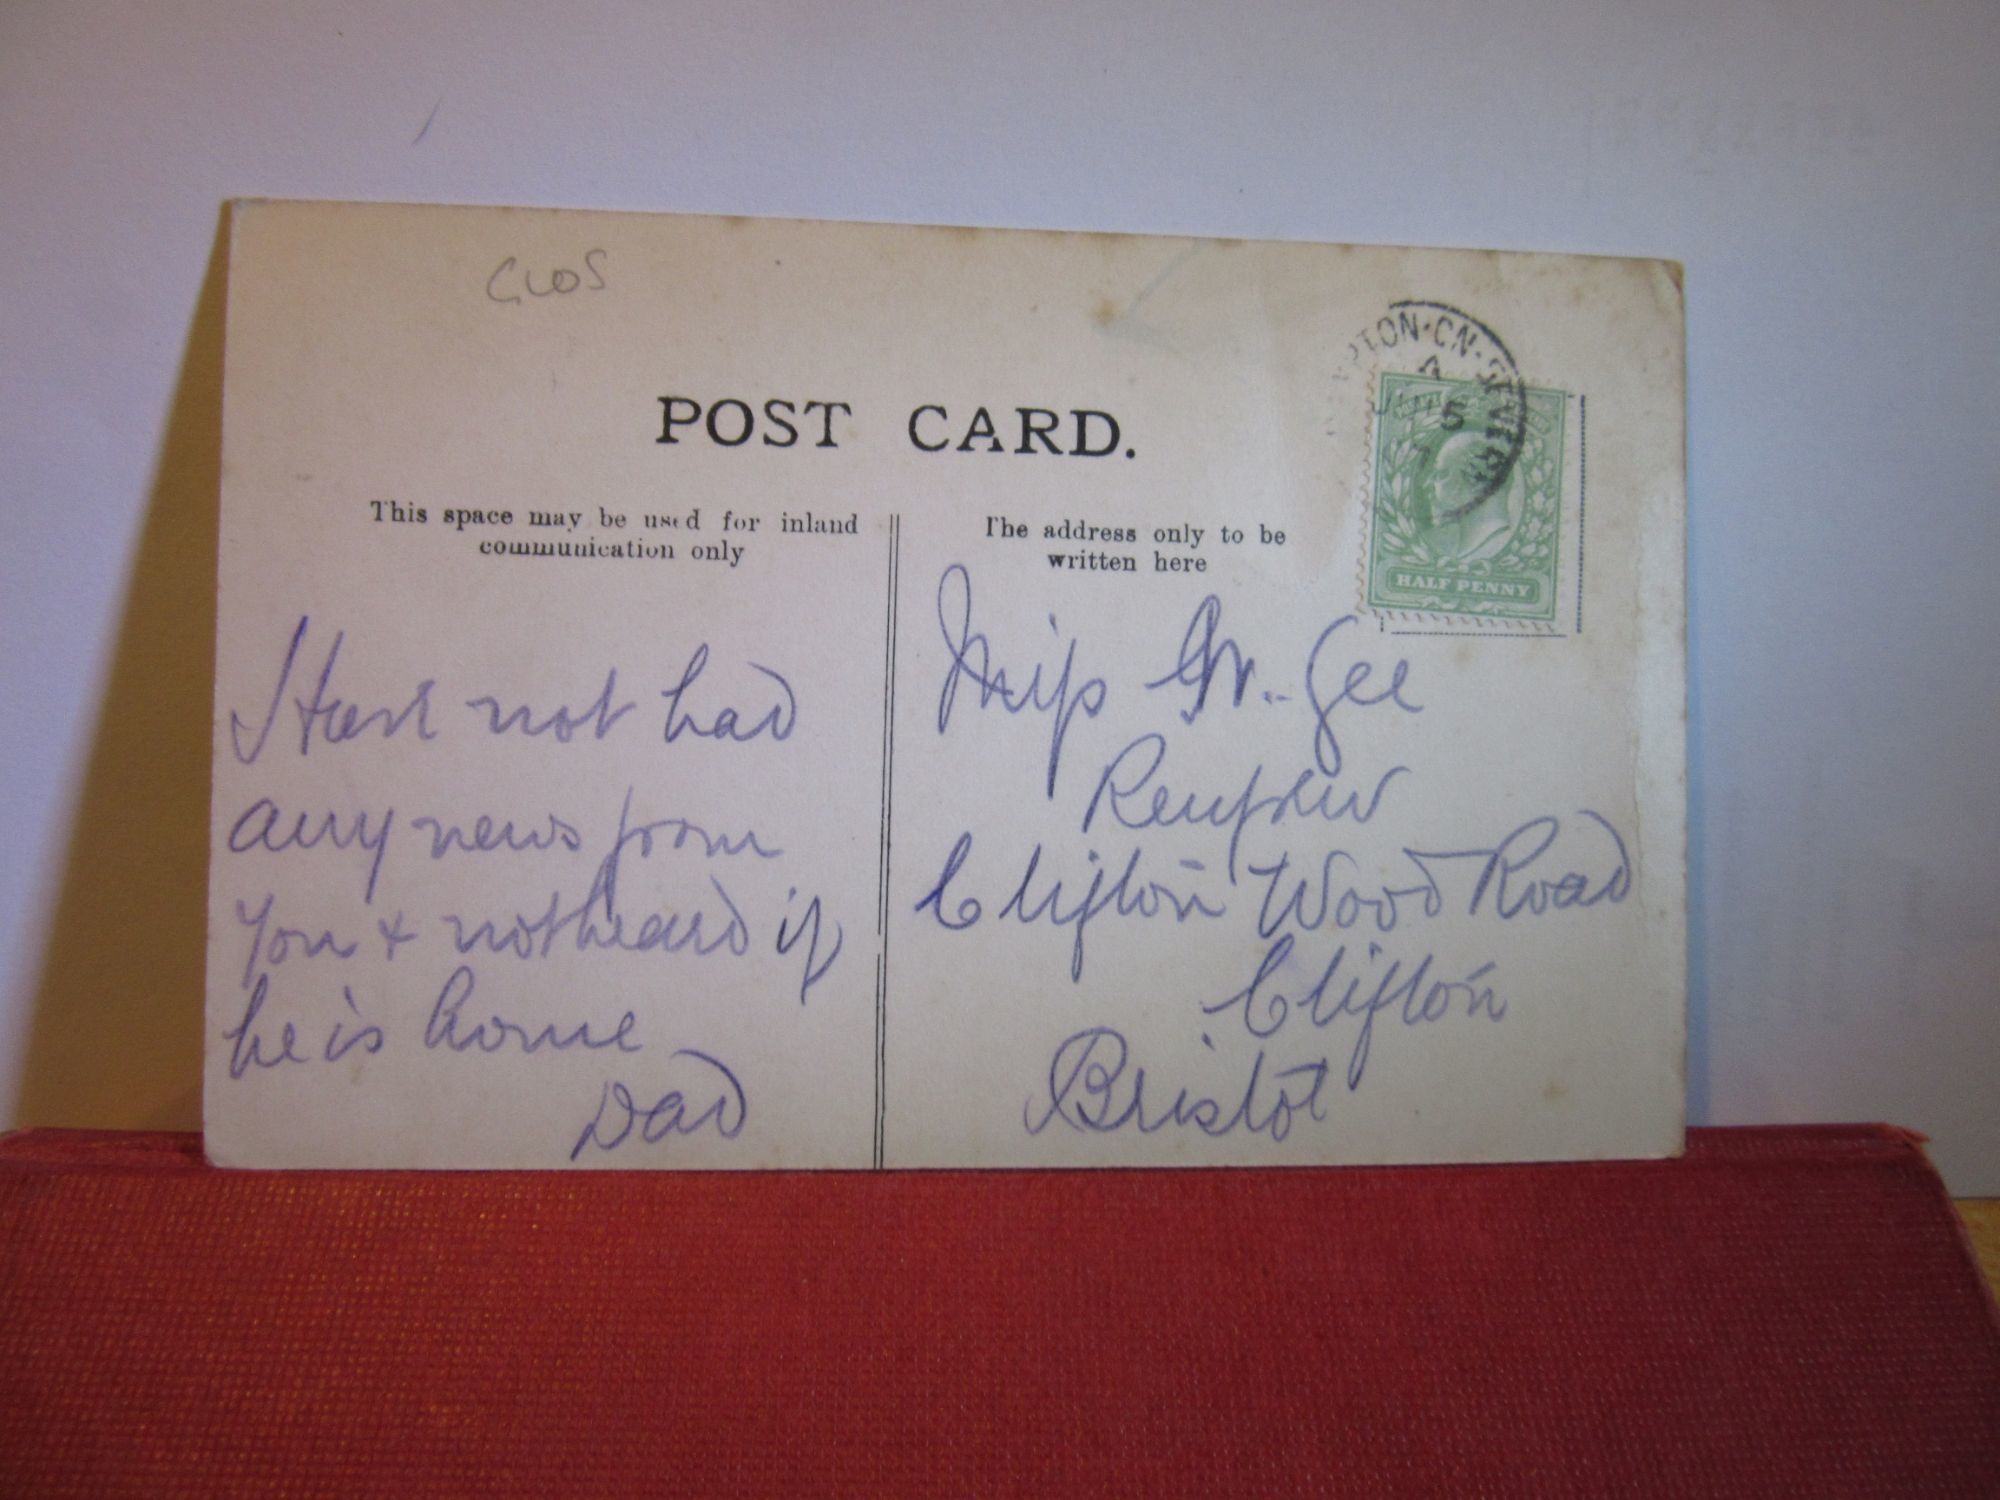 GLOS
POST CARD.
This space may be used for inland
communication only
The address only to be
written here
PTON·ON·SEVERN
A
5
7
HALF PENNY
Have not had
any news from
you & not heard if
he is home
Dad
Miss W. Gee
Renfrew
Clifton Wood Road
Clifton
Bristol